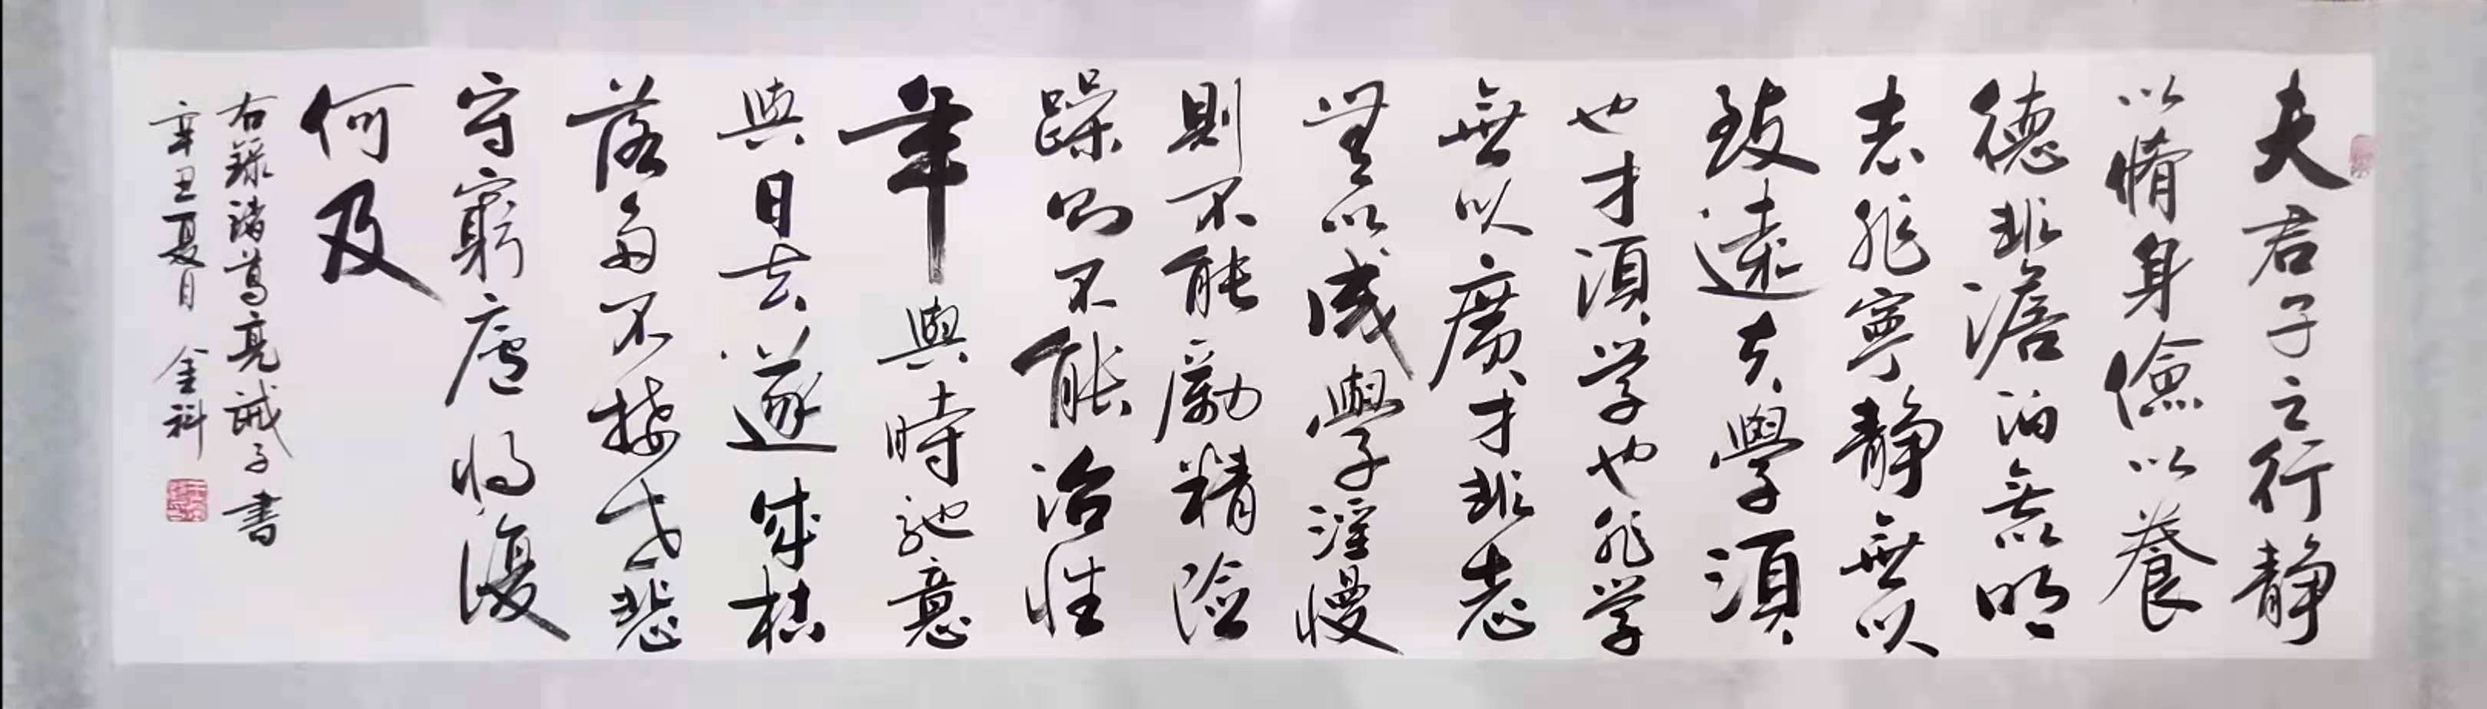 夫君子之行静
以脩身儉以養
德非澹泊無以明
志非寧静無以
致遠夫學須
也才須学也非学
無以廣才非志
無以成學淫慢
則不能勵精險
躁則不能治性
年與時馳意
與日去遂成枯
落多不接世悲
守窮廬将復
何及
右錄諸葛亮誡子書
辛丑夏日 金科